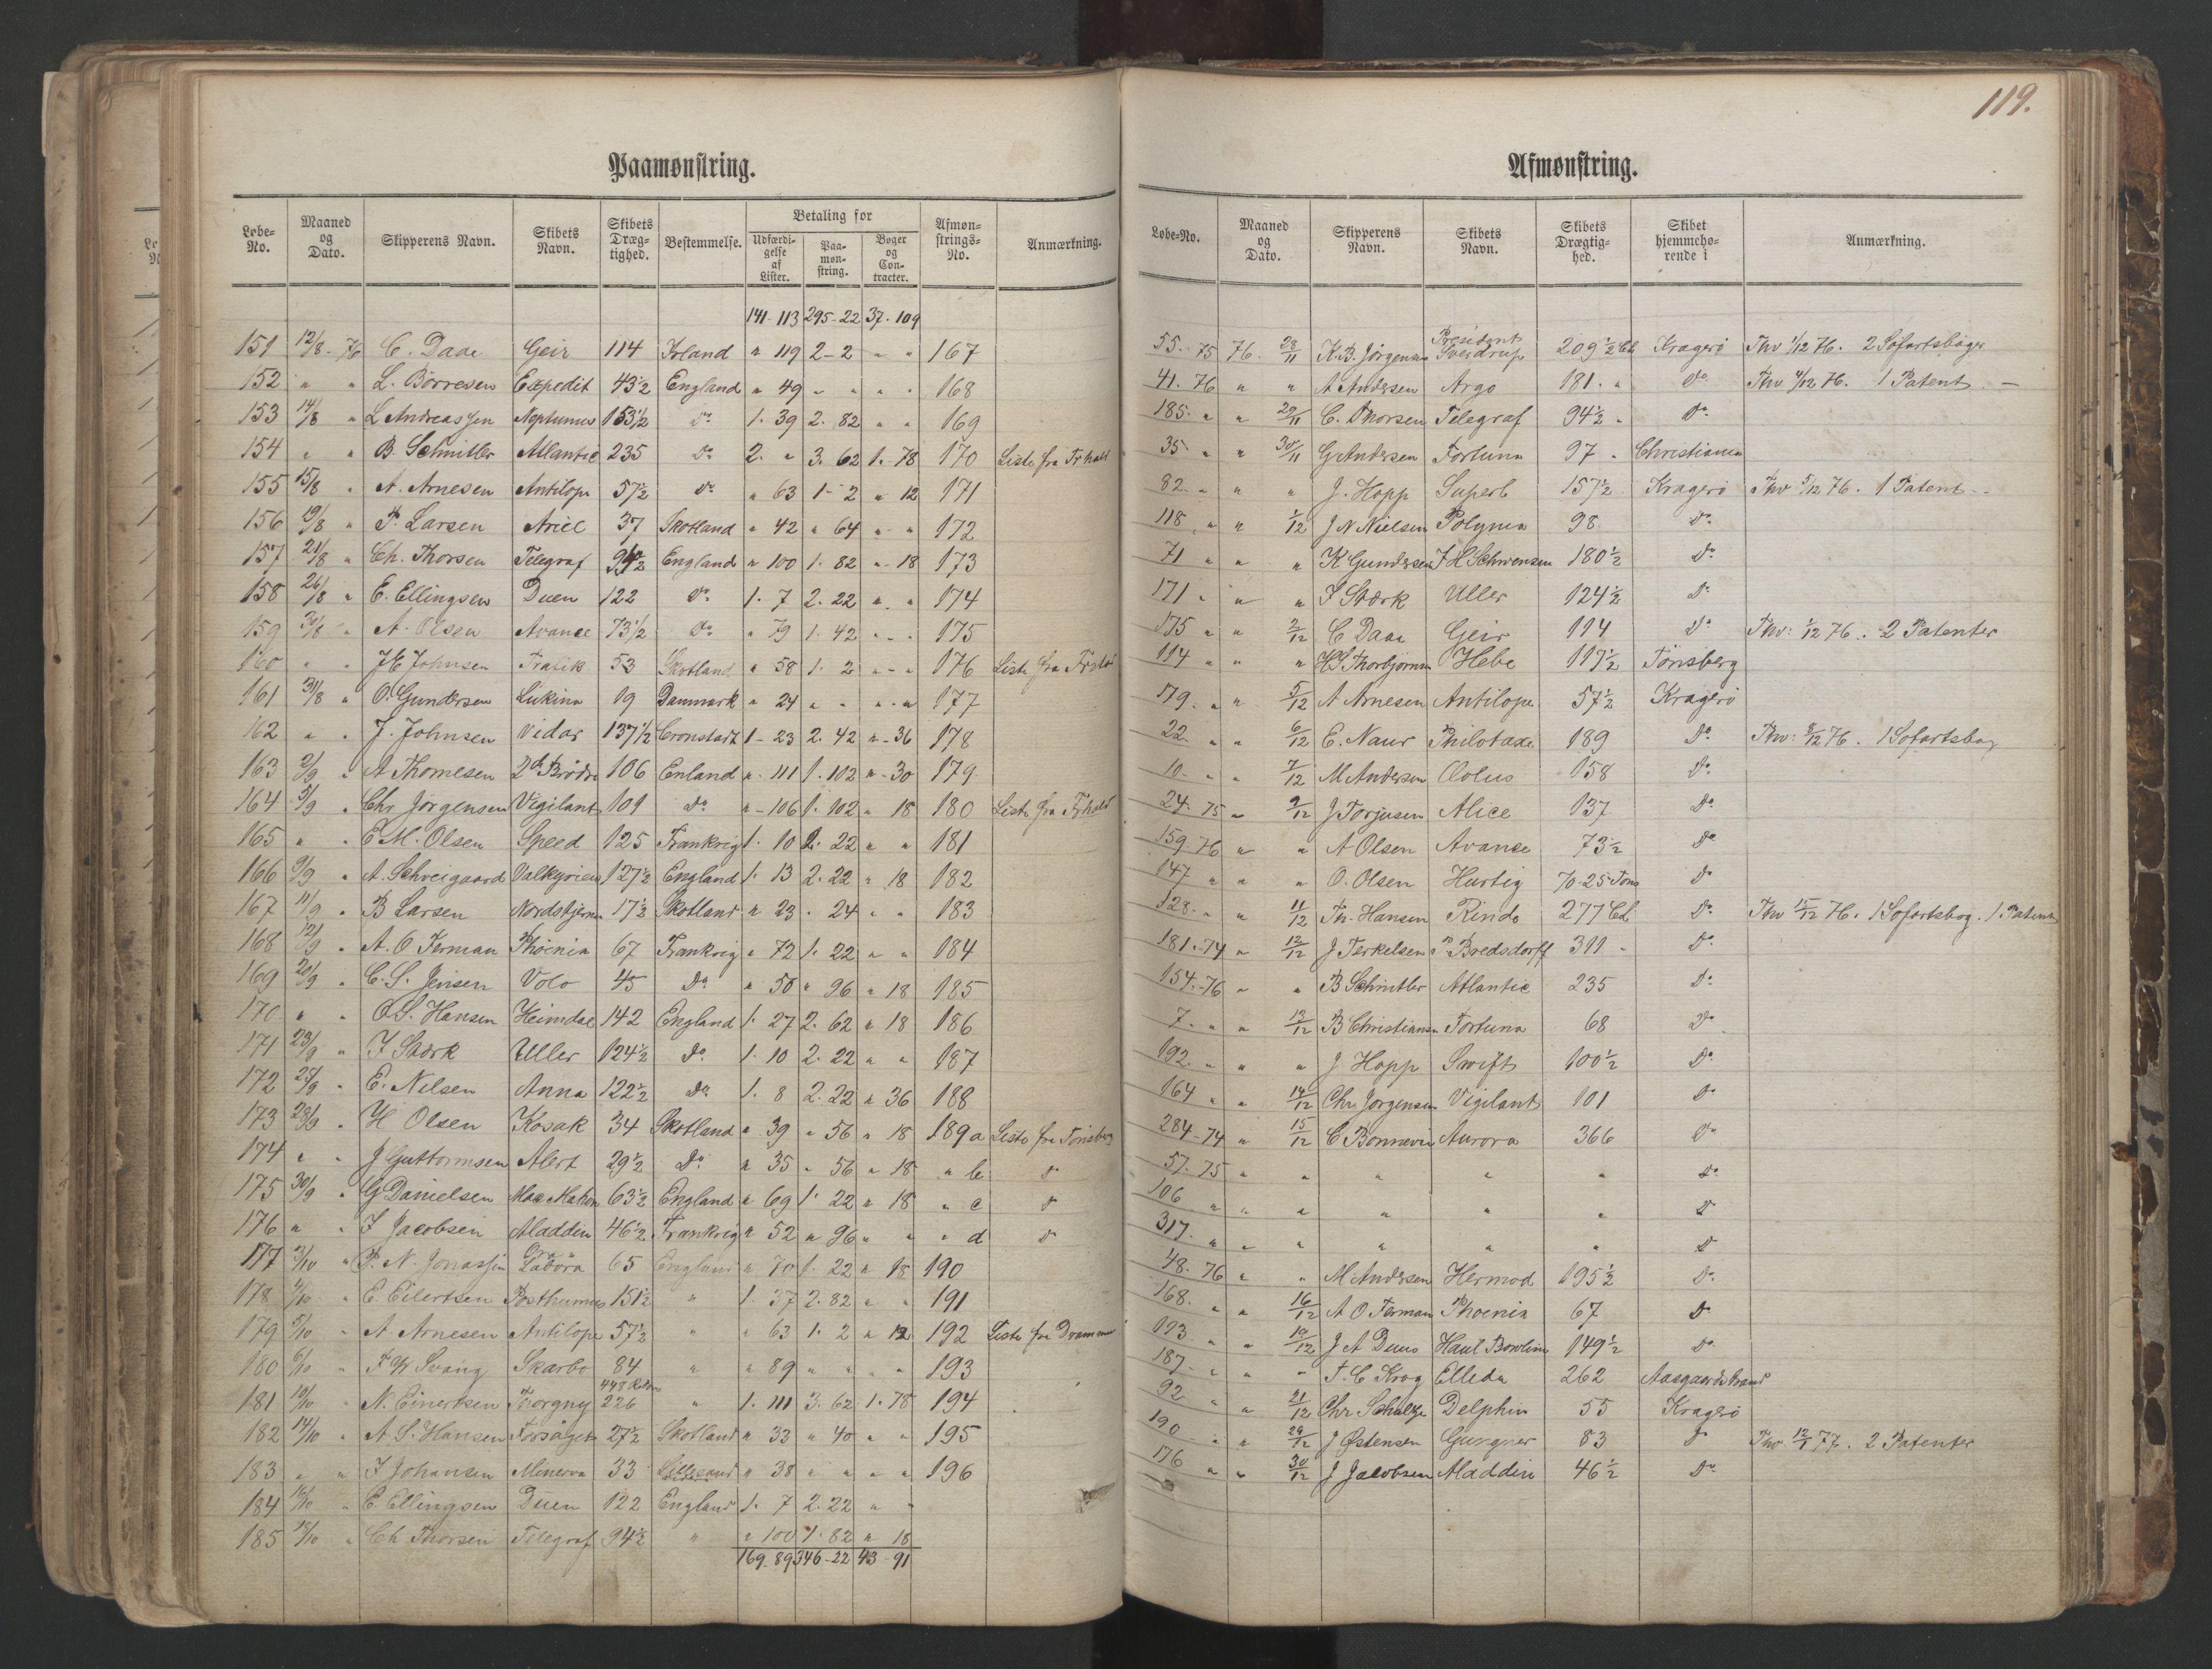 119.
Paamønstring.
Løbe-No. | Maaned og Dato. | Skipperens Navn. | Skibets Navn. | Skibets Drægtighed. | Bestemmelse. | Betaling for Udfærdigelse af Lister. | Paamønstring. | Bøger og Contracter. | Afmønstrings-No. | Anmærkning.
141-113 295-22 37-109
151 12/8-76 C. Daae Geir 114 Irland " 119 2-2 " " 167
152 " " L. Børresen Expedit 43 1/2 England " 49 - " " " 168
153 14/8 " L Andreassen Neptunus 153 1/2 Do 1. 39 2. 82 " " 169
154 " " B. Schnitler Atlantic 235 Do 2. " 3. 62 1.-78 170 Liste fra Frhald
155 15/8 " A. Arnesen Antilope 57 1/2 Do " 63 1-2 " 12 171
156 19/8 " P. Larsen Ariel 37 Skotland " 42 " 64 " " 172
157 21/8 " Ch. Thorsen Telegraf 94 1/2 England " 100 1. 82 " 18 173
158 26/8 " E. Ellingsen Duen 122 Do 1. 7 2. 22 " " 174
159 30/8 " A. Olsen Avance 73 1/2 Do " 79 1. 42 " " 175
160 " " J E Johnsen Tralik 53 Skotland " 58 1. 2 " " 176 Liste fra
161 31/8 " O. Gundersen Lukina 19 Danmark " 24 " " " " 177
162 " " J. Johnsen Vidar 137 1/2 Cronstadt 1-23 2. 42 "-36 178
163 2/9 " A Thomesen 2de Brødre 106 Enland ". 111 1. 102 "-30 179
164 5/9 " Chr Jørgensen Vigilant 101 Do "-106 1. 102 " 18 180 Liste fra Frhald
165 " " E M. Olsen Speed 125 Frankrig 1. 10 2. 22 " " 181
166 9/9 " A. Schweigaard Valkyrien 127 1/2 England 1. 13 2. 22 " 18 182
167 11/9 " B Larsen Nordstjernen 17 1/2 Skotland " 23 " 24 " " 183
168 12/9 " A. O Terman Phoenix 67 Frankrig " 72 1. 22 " " 184
169 20/9 " C. S. Jensen Volo 45 Do " 50 " 96 " 18 185
170 " " O S. Hansen Heimdal 142 England 1. 27 2. 62 " 18 186
171 23/9 " J Stærk Uller 124 1/2 Do 1. 10 2. 22 " " 187
172 25/9 " E. Nilsen Anna 122 1/2 Do 1. 8 2. 22 " 36 188
173 28/9 " H Olsen Kosak 34 Skotland " 39 " 56 " 18 189 a Liste fra Tønsberg
174 " " J Guttormsen Alert 29 1/2 Do " 35 " 56 " 18 " b Do
175 30/9 " G Danielsen Mac Mahon 63 1/2 England " 69 1. 22 " 18 " c Do
176 " " J Jacobsen Aladdin 46 1/2 Frankrig " 52 " 96 " " " d Do
177 3/10 " P. N. Jonassen Ora et Labora 65 England " 70 1. 22 " 18 190
178 4/10 " E. Eilertsen Posthumus 151 1/2 " 1. 37 2. 82 " " 191
179 5/10 " A Arnesen Antilope 57 1/2 " " 63 1. 2 " 12 192 Liste fra Drammen
180 6/10 " J W Svang Skarbo 84 " " 89 " " " " 193
181 10/10 " N. Einertsen Thorgny 226 " 1. 111 3. 62 1. 78 194
182 14/10 " A. S. Hansen Forsøget 27 1/2 Skotland " 33 " 40 " " 195
183 " " J Johansen Minerva 33 Lillesand " 38 " " " " 196
184 16/10 " E Ellingsen Duen 122 England 1. 7 2. 22 " "
185 18/10 " Ch Thorsen Telegraf 94 1/2 " " 100 1. 82 " 18
169-89 346-22 43-91
Afmønstring.
Løbe-No. | Maaned og Dato. | Skipperens Navn. | Skibets Navn. | Skibets Drægtighed. | Skibet hjemmehørende i | Anmærkning.
55.-75 76. 28/11 K. B. Jørgensen President Sverdrup 209 1/2 Cl Kragerø Thv 1/12 76. 2 Søfartsbøger
41. 76 " " A Andersen Argo 181. " Do Thv 4/12 76. 1 Patent. -
185. " " 29/11 C. Thorsen Telegraf 94 1/2 - Do
35. " " 30/11 G Andersen Fortuna 97 - Christiania
82. " " " J. Hopp Superb 157 1/2 Kragerø Thv 5/12 76. 1 Patent. -
118 " " 1/12 J N Nielsen Polynia 98 Do
71 " " " K Gundersen J H Schwensen 180 1/2 Do
171 " " " J Stærk Uller 124 1/2 Do
175 " " 2/12 C Daae Geir 114 Do Thv: 1/12 76. 2 Patenter
114 " " " H S Thorbjørnsen Hebe 117 1/2 Tønsberg
179. " " 5/12 A Arnesen Antilope 57 1/2 Kragerø
22. " " 6/12 E. Naur Philotaxe 189 Do Thv: 8/12 76. 1 Søfartsbog
10. " " 7/12 M Andersen Æolus 158 Do
24. 75 " 9/12 J Torjusen Alice 137 Do
159 76 " " A Olsen Avance 73 1/2 Do
147 " " " O. Olsen Hurtig 70.25 Tons Do
128. " " 11/12 Th. Hansen Rindo 277 Cl. Do Thv 15/12 76. 1 Søfartsbog. 1 Patent
181.-74 " 12/12 J Terkelsen P Bredsdorff 311 - Do
154.-76 " " B Schnitler Atlantic 235 Do
7. " " 13/12 B Christiansen Fortuna 68 Do
192. " " " J Hopp Swift 100 1/2 Do
164 " " 14/12 Chr Jørgensen Vigilant 101 Do
284-74 " 15/12 C Bonnevie Aurora 366 Do
57. 75 " " " " " Do
106 " " " " " " Do
317. " " " " " " Do
48. 76 " " M Andersen Hermod 195 1/2 Do
168. " " 16/12 A O Terman Phoenix 67 Do
193 " " 19/12 J A Duus Haul Bowline 149 1/2 Do
187 " " " T. C Krog Elleda 262 Aasgaardstrand
92 " " 21/12 Chr Schulze Delphin 55 Kragerø
190 " " 29/12 J Østensen Gungner 83 Do Thv 12/1 77. 2 Patenter
176 " " 30/12 J Jacobsen Aladdin 46 1/2 Do